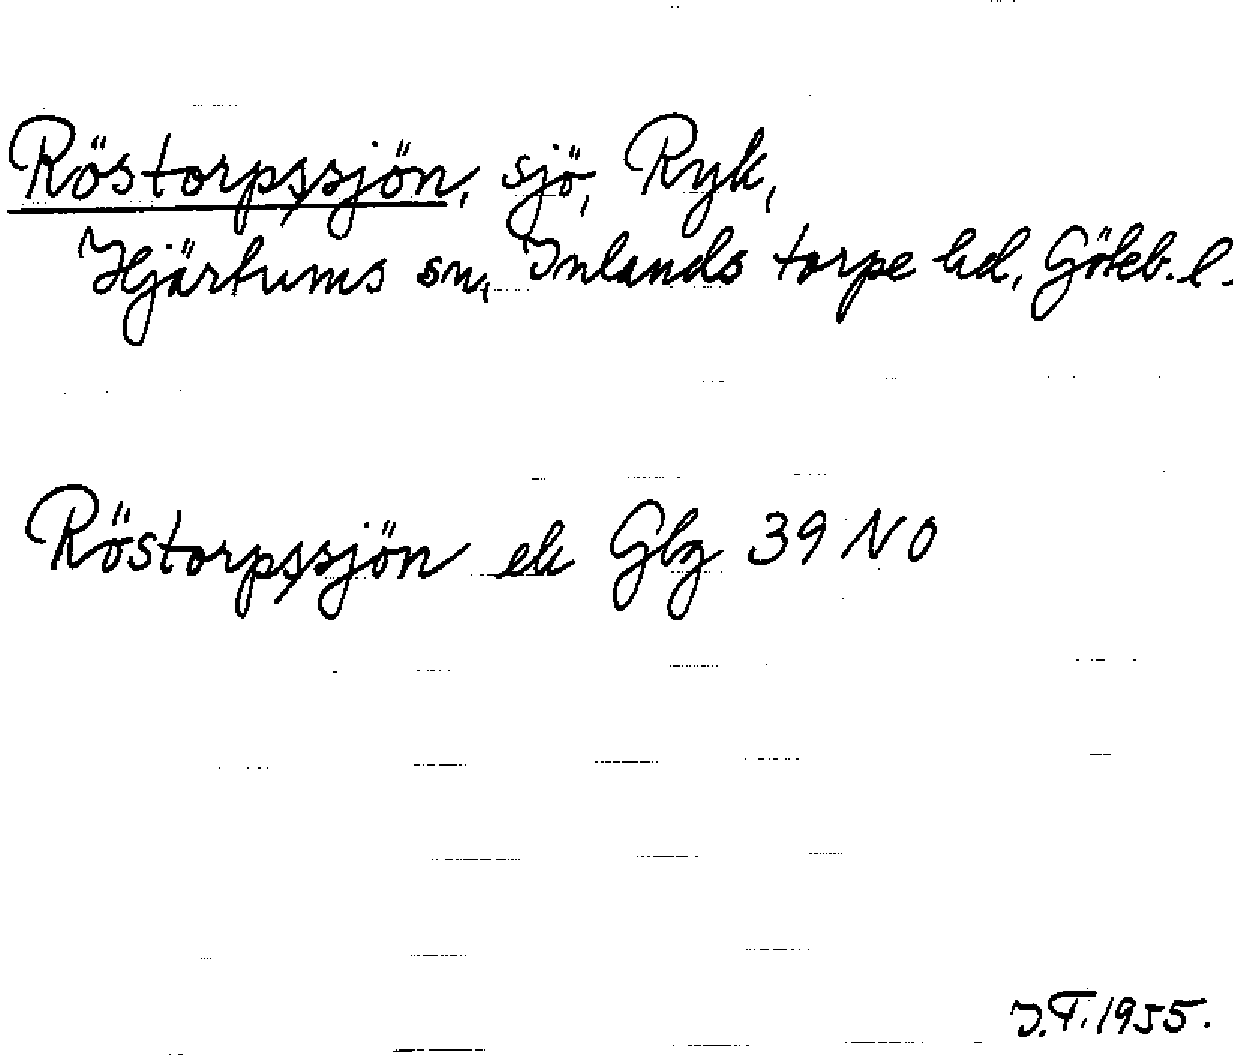 Röstorpssjön, sjö, Ryk,
Hjärtums sn, Inlands torpe hd, Göteb. l.
Röstorpssjön ek Gbg 39 NO
J.T. 1955.